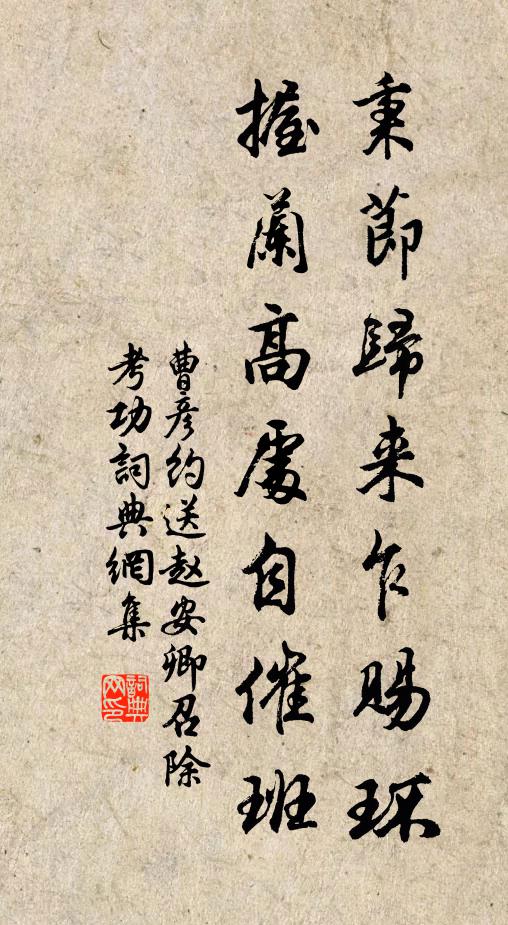 秉節歸来乍賜环
握蘭高處自催班
曹彦約送赵安卿召除
考功詞典網集
詞典網印